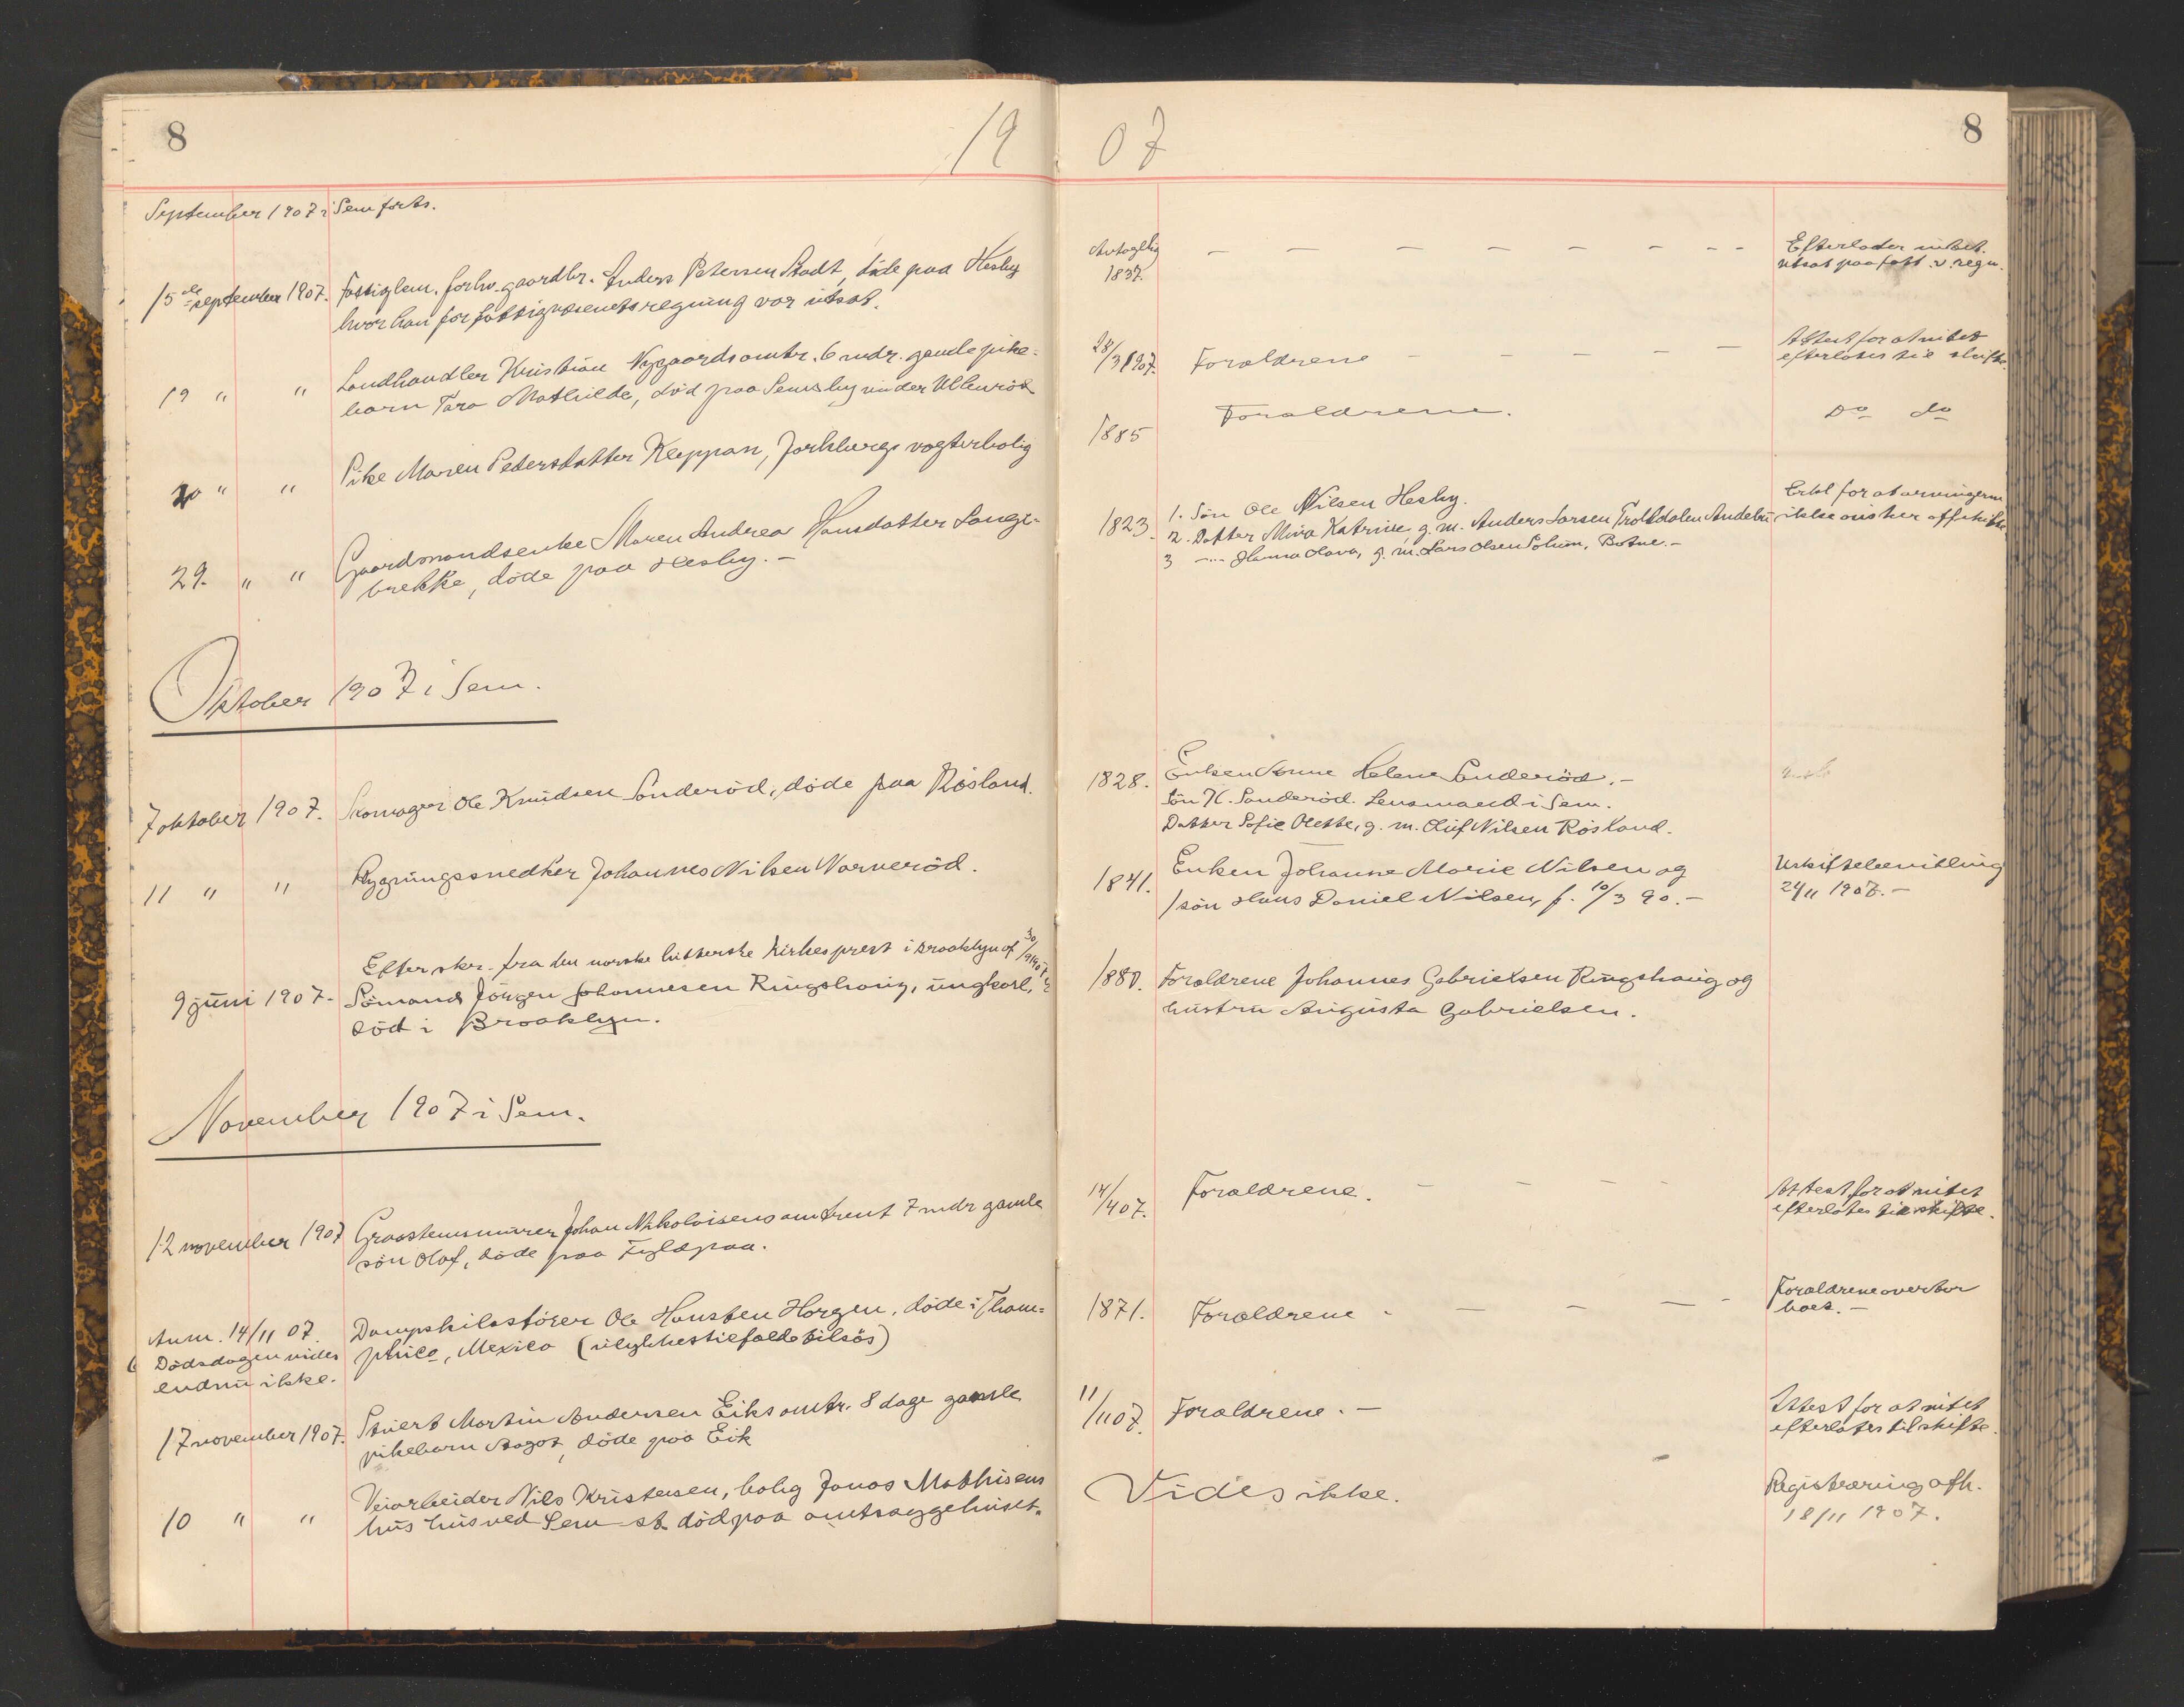 8
19
07
8
September 1907 i Sem forts.
15de september 1907. Fattiglem. forhv. gaardbr. Anders Petersen Stadt, døde paa Hesby
hvor han for fattigvæsenets regning var utsat.
Antagelig
1837.
Efterlader intet.
utsat paa fatt. v. regn.
19 " " Landhandler Kristian Nygaards omtr. 6 mdr. gamle pike-
barn Tara Mathilde, död paa Semsby under Ullenröd
28/3 1907. Forældrene
Attest for at intet
efterlates til skifte.
20 " " Pike Maren Pedersdatter Kleppan, Jarlsbergs vogterbolig
1885 Forældrene.
Do do
29. " " Gaardmandsenke Maren Andrea Hansdatter Lange-
brekke, döde paa Hesby. -
1823. 1. Sön Ole Nilsen Hesby.
2. Datter Mina Katrine g. m. Anders Larsen Trolldalen Andebu
3 -"- Hanna Olava, g. m. Lars Olsen Solum, Botne. -
Erkl for at arvingerne
ikke önsker off. skifte.
Oktober 1907 i Sem.
7 oktober 1907. Skomager Ole Knudsen Sanderöd, döde paa Røsland.
1828. Enken Anne Helene Sanderöd. -
Sön K. Sanderöd. Lensmand i Sem.
Datter Sofie Olette, g. m. Oluf Nilsen Rösland.
11 " " Bygningssnedker Johannes Nilsen Narveröd.
1841. Enken Johanne Marie Nilsen og
1 sön Hans Daniel Nilsen, f. 10/3 90. -
Uskiftebevilling
2/11 1907. -
Efter skr. fra den norske lutterske Kirkes prest i Brooklyn af 30/9 1907
9 juni 1907. Sömand Jörgen Johannesen Ringshaug, ungkarl,
död i Brooklyn.
1880. Forældrene Johannes Gabrielsen Ringshaug og
hustru Augusta Gabrielsen.
November 1907 i Sem.
12 november 1907 Graastensmurer Johan Nikolaisens omtrent 7 mdr gamle
sön Olaf, döde paa Fyldpaa.
14/4 07. Forældrene.
Attest for at intet
efterlates til skifte.
Anm. 14/11 07.
Dödsdagen vides
endnu ikke.
Dampskibsförer Ole Hansten Horgen, döde i Tham-
phico, Mexico (ulykkestilfælde tilsös)
1871. Forældrene
Forældrene overtar
boet. -
17 november 1907. Stuert Martin Andersen Eiks omtr. 8 dage gamle
pikebarn Aagot, döde paa Eik
11/11 07. Forældrene. -
Attest for at intet
efterlates til skifte.
10 " " Veiarbeider Nils Kristensen, bolig Jonas Mathisens
hus ved Sem st. död paa amtssygehuset.
Vides ikke.
Registrering afh.
18/11 1907.